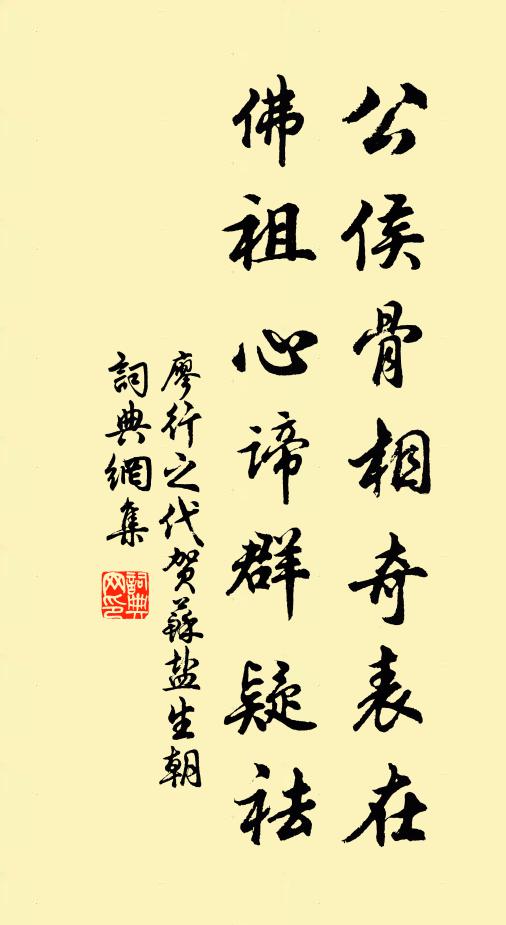 公侯骨相奇表在
佛祖心諦群疑祛
廖行之代贺蘇盐生朝
詞典網集
詞典网印